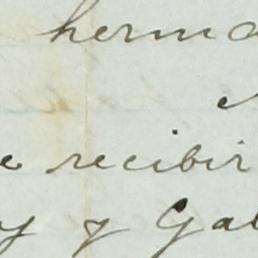 herma
e recibir
y y Gal